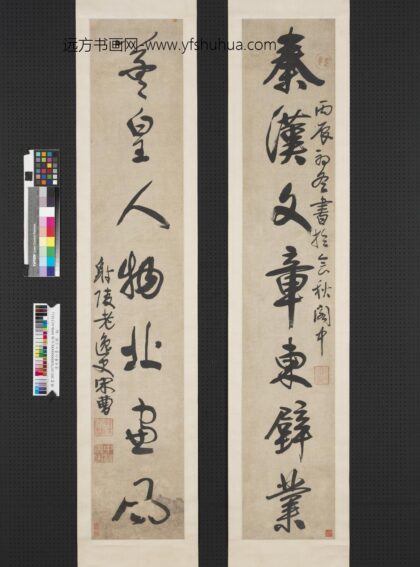 远方书画网·www.yfshuhua.com
秦漢文章東壁業
丙辰初冬書於會秋閣中
羲皇人物北窗風
射陵老逸史宋曹